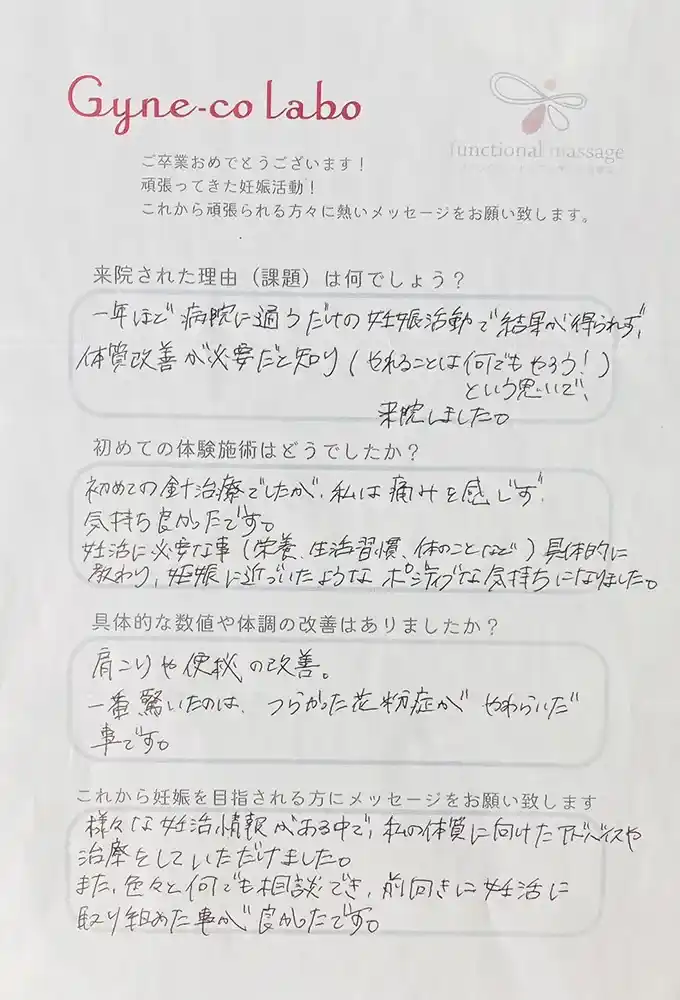 Gyne-co labo
functional massage
ご卒業おめでとうございます！
頑張ってきた妊娠活動！
これから頑張られる方々に熱いメッセージをお願い致します。
来院された理由（課題）は何でしょう？
一年ほど病院に通うだけの妊娠活動で結果が得られず、
体質改善が必要だと知り(やれることは何でもやろう！)
という思いで、
来院しました。
初めての体験施術はどうでしたか？
初めての針治療でしたが、私は痛みを感じず、
気持ち良かったです。
妊活に必要な事(栄養、生活習慣、体のことなど)具体的に
教わり、妊娠に近づいたようなポジティブな気持ちになりました。
具体的な数値や体調の改善はありましたか？
肩こりや便秘の改善。
一番驚いたのは、つらかった花粉症がやわらいだ
事です。
これから妊娠を目指される方にメッセージをお願い致します
様々な妊活情報がある中で、私の体質に向けたアドバイスや
治療をしていただけました。
また、色々と何でも相談でき、前向きに妊活に
取り組めた事が良かったです。